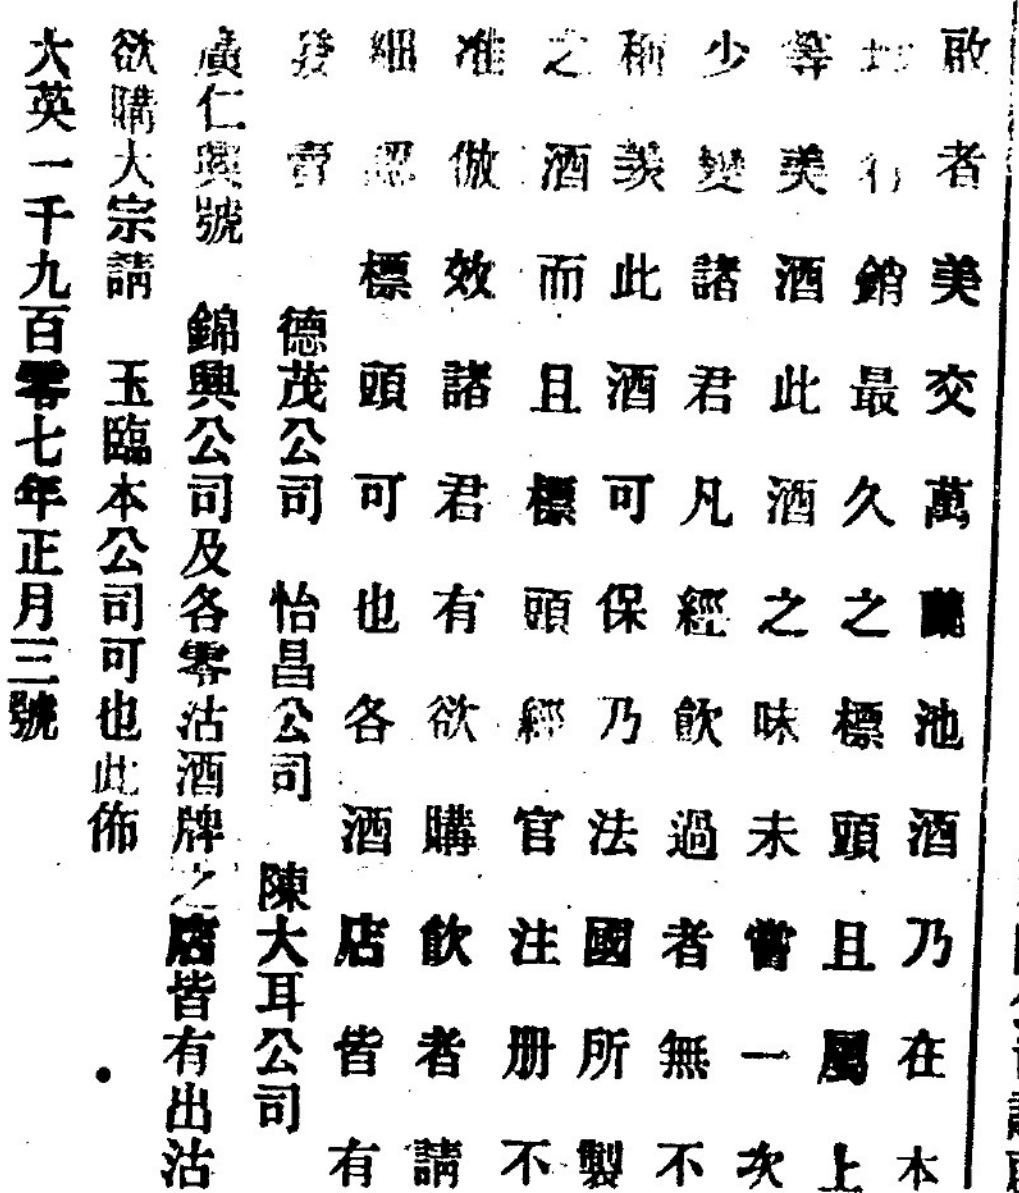 啟者美交萬蘭池酒乃在本
行銷最久之標頭且屬上
等美酒此酒之味未嘗一次
少變諸君凡經飲過者無不
稱羨此酒可保乃法國所製
之酒而且標頭經官注册不
准倣效諸君有欲購飲者請
細認標頭可也各酒店皆有
發賣　德茂公司　怡昌公司　陳大耳公司
廣仁興號　錦興公司及各零沽酒牌之店皆有出沽
欲購大宗請　玉臨本公司可也此佈
大英一千九百零七年正月三號